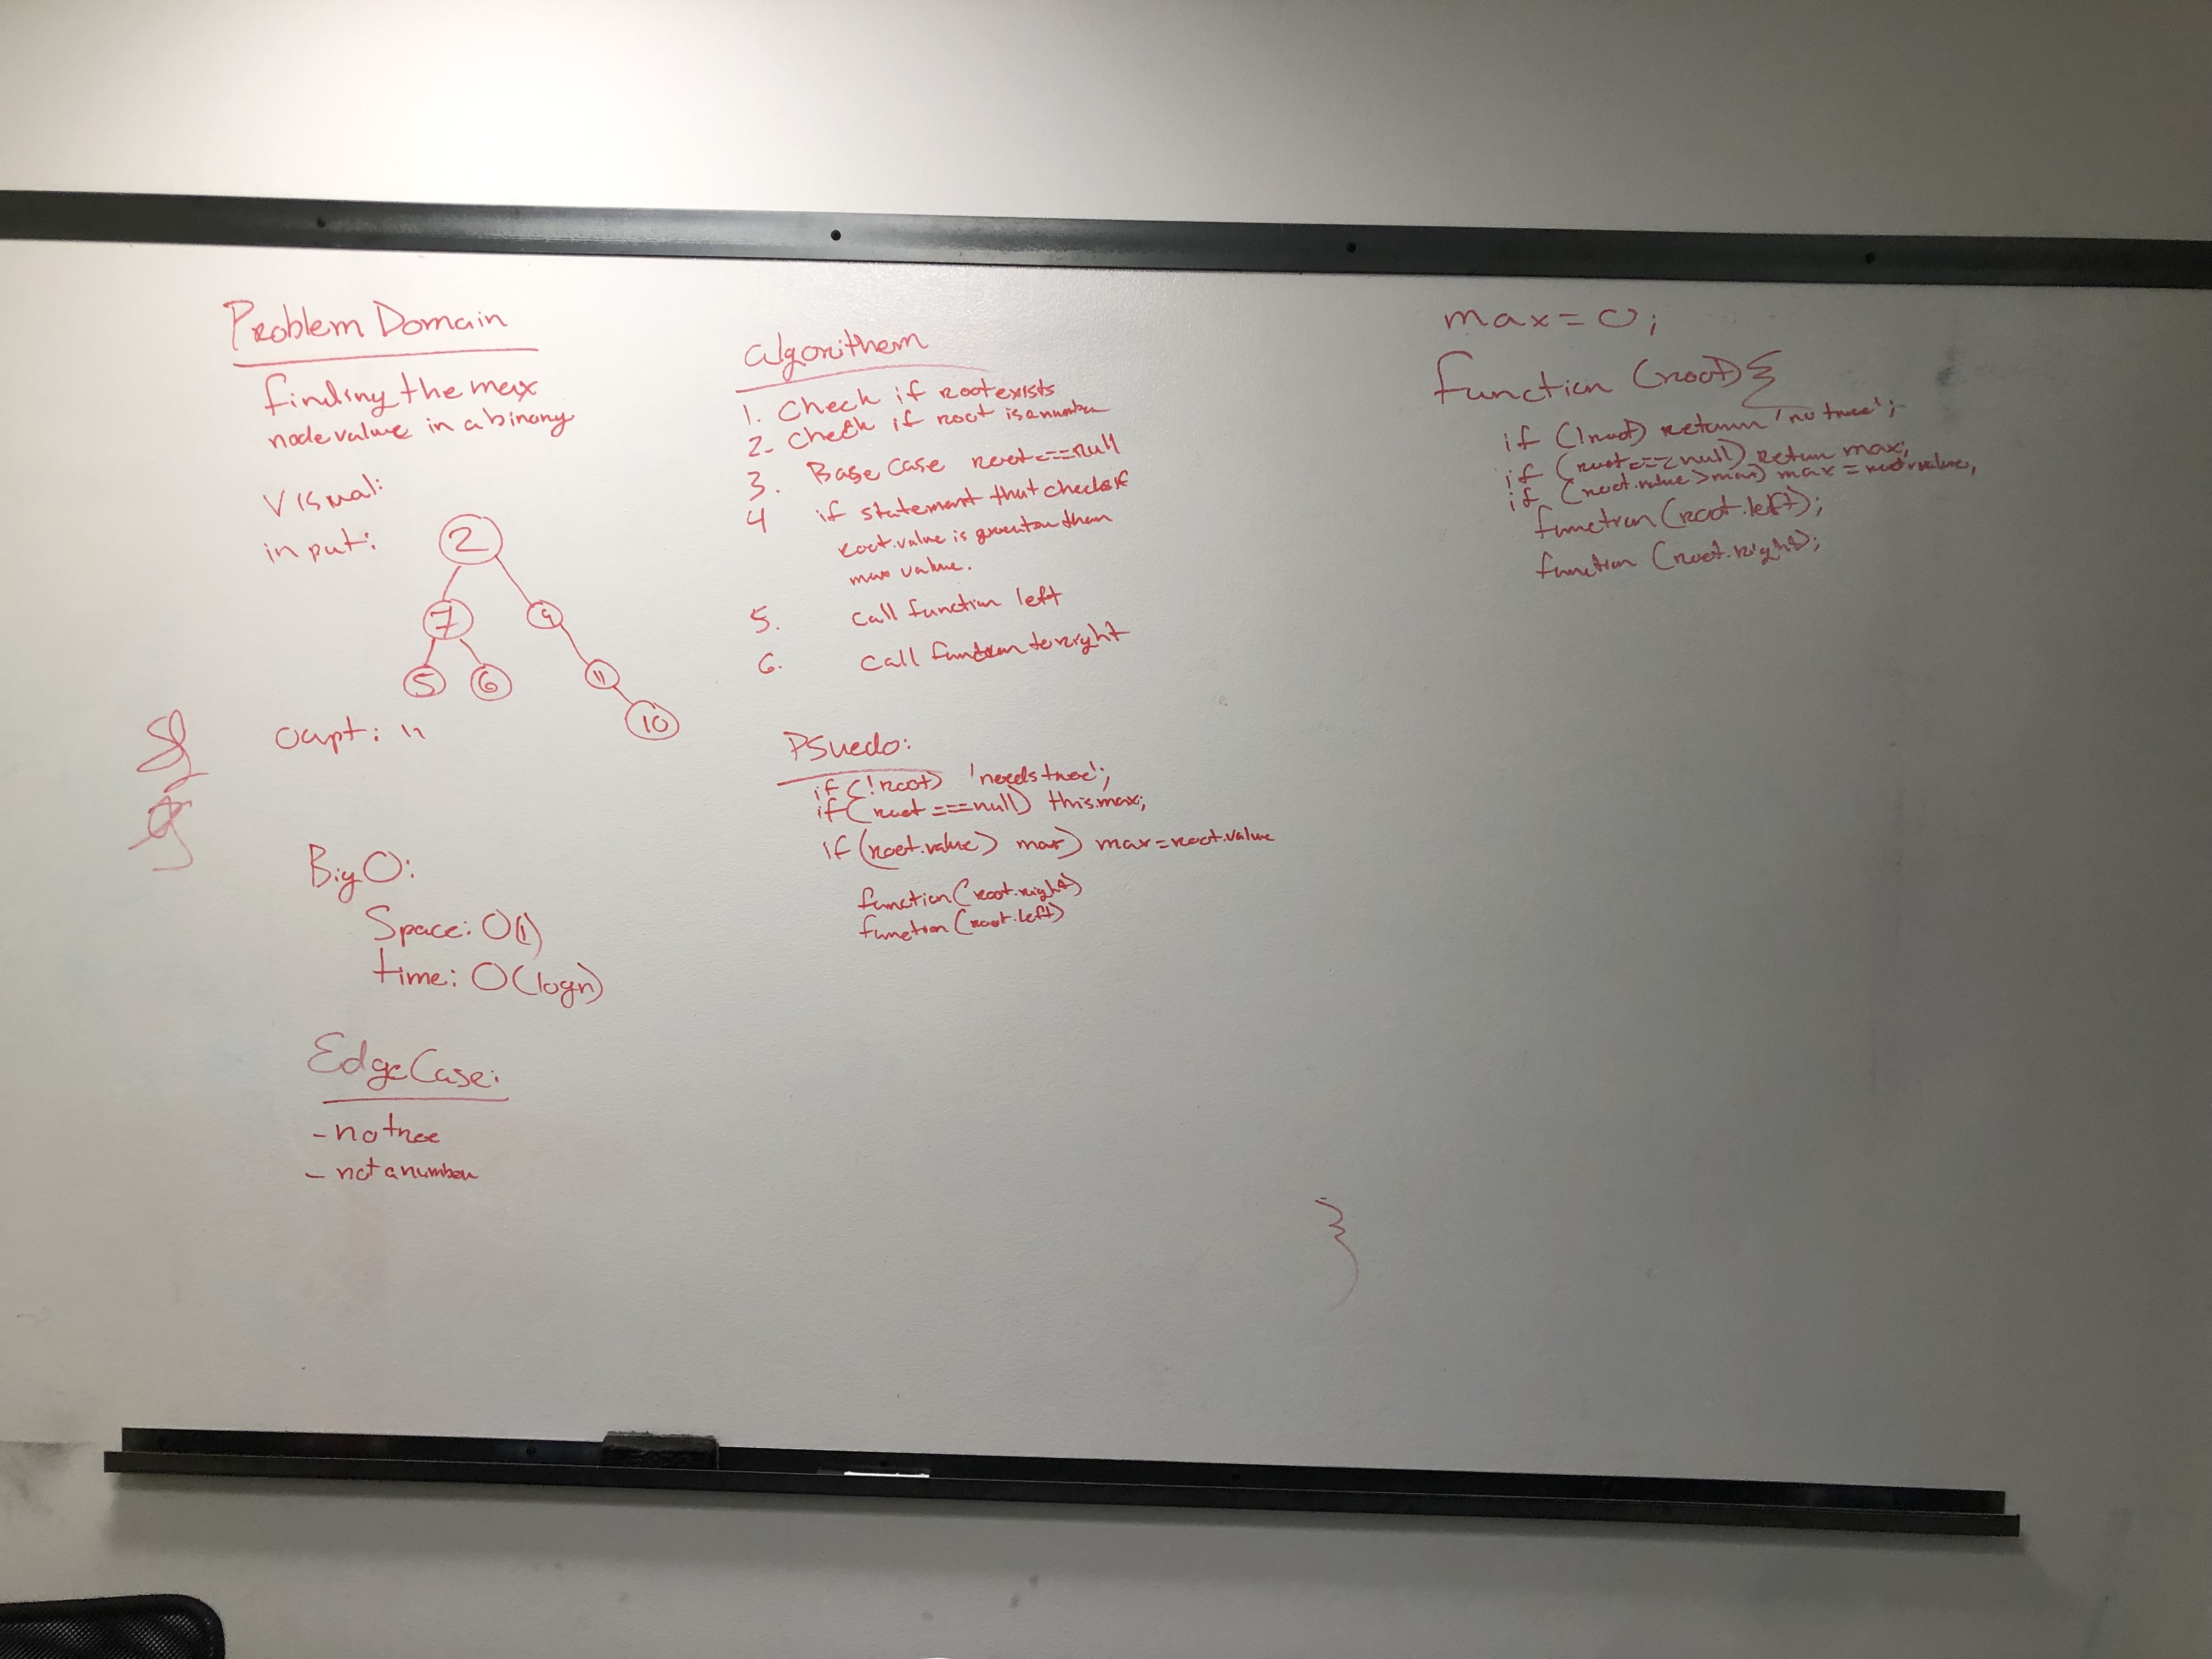 Problem Domain
finding the max
node value in a binary
Visual:
input:
2
7
9
5
6
11
10
Oupt: 11
Big O:
Space: O(1)
time: O(logn)
Edge Case:
- no tree
- not a number
algorithem
1. Check if root exists
2. Check if root is a number
3. Base Case root===null
4 if statement that checks if
root.value is greater than
max value.
5. call function left
6. call function to right
PSuedo:
if(!root) 'needs tree';
if(root===null) this.max;
if(root.value> max) max=root.value
function(root.right)
function(root.left)
max=0;
function (root){
if (!root) return 'no tree';
if (root===null) return max;
if (root.value>max) max=root.value;
function(root.left);
function (root.right);
}